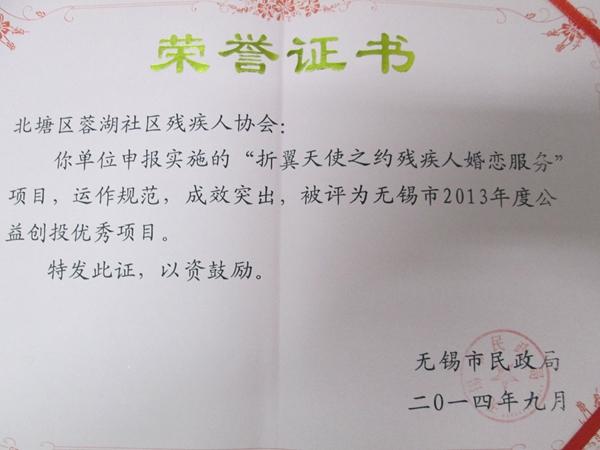 荣誉证书
北塘区蓉湖社区残疾人协会：
你单位申报实施的“折翼天使之约残疾人婚恋服务”
项目，运作规范，成效突出，被评为无锡市2013年度公
益创投优秀项目。
特发此证，以资鼓励。
无锡市民政局
二〇一四年九月